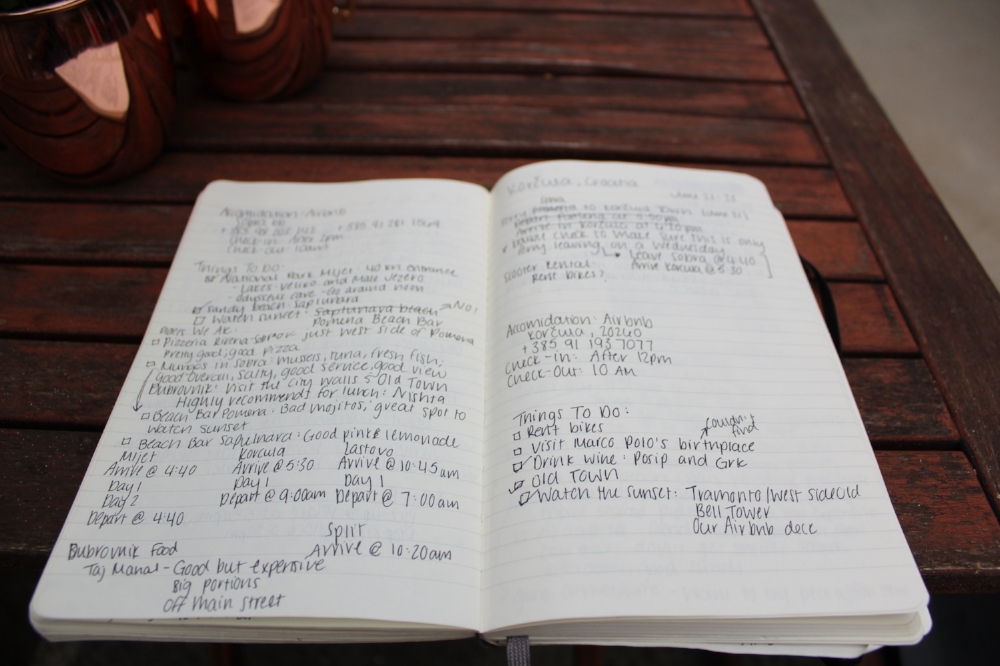 Accomidation: Airbnb
Check-in: After 2pm
Check-out: 10am
Things To Do:
National Park Mljet 40 kn entrance
- Lakes Veliko and Malo Jezero
- Odysseus cave - Go around
Sandy beach: Saplunara
Watch sunset: Saplunara beach → No!
Pomena Beach Bar
Places We Ate:
Pizzeria Riviera: just west side of Pomena
Pretty good; good pizza
Mungos in Sobra: mussels, tuna, fresh fish;
Good overall, salty, good service, good view
Dubrovnik: Visit the City Walls & Old Town
Highly recommends for lunch: Nishta
Beach Bar Pomena: Bad mojitos; great spot to
watch sunset
Beach Bar Saplunara: Good pink lemonade
Mljet Korcula Lastovo
Arrive @ 4:40 Arrive @ 5:30 Arrive @ 10:45am
Day 1 Day 1 Day 1
Day 2 Depart @ 9:00am Depart @ 7:00am
Depart @ 4:40
Split
Arrive @ 10:20am
Dubrovnik Food
Taj Mahal - Good but expensive
Big portions
Off main street
Korčula, Croatia
Ferry Pomena to Korčula Town
Sobra
Depart Pomena at
Arrive in Korčula at
* Double check to make sure this is only
ferry leaving on a Wednesday
→ Leave Sobra @ 4:40
Arrive Korcula @ 5:30
Scooter Rental:
Rent bikes?
Accomidation: Airbnb
Korčula, 20260
+385 91 193 7077
Check-in: After 12pm
Check-Out: 10 AM
Things To Do:
Rent bikes
couldn't find
Visit Marco Polo's birthplace
Drink wine: Posip and Grk
Old Town
Watch the sunset: Tramonto/west side old
Bell Tower
Our Airbnb dece